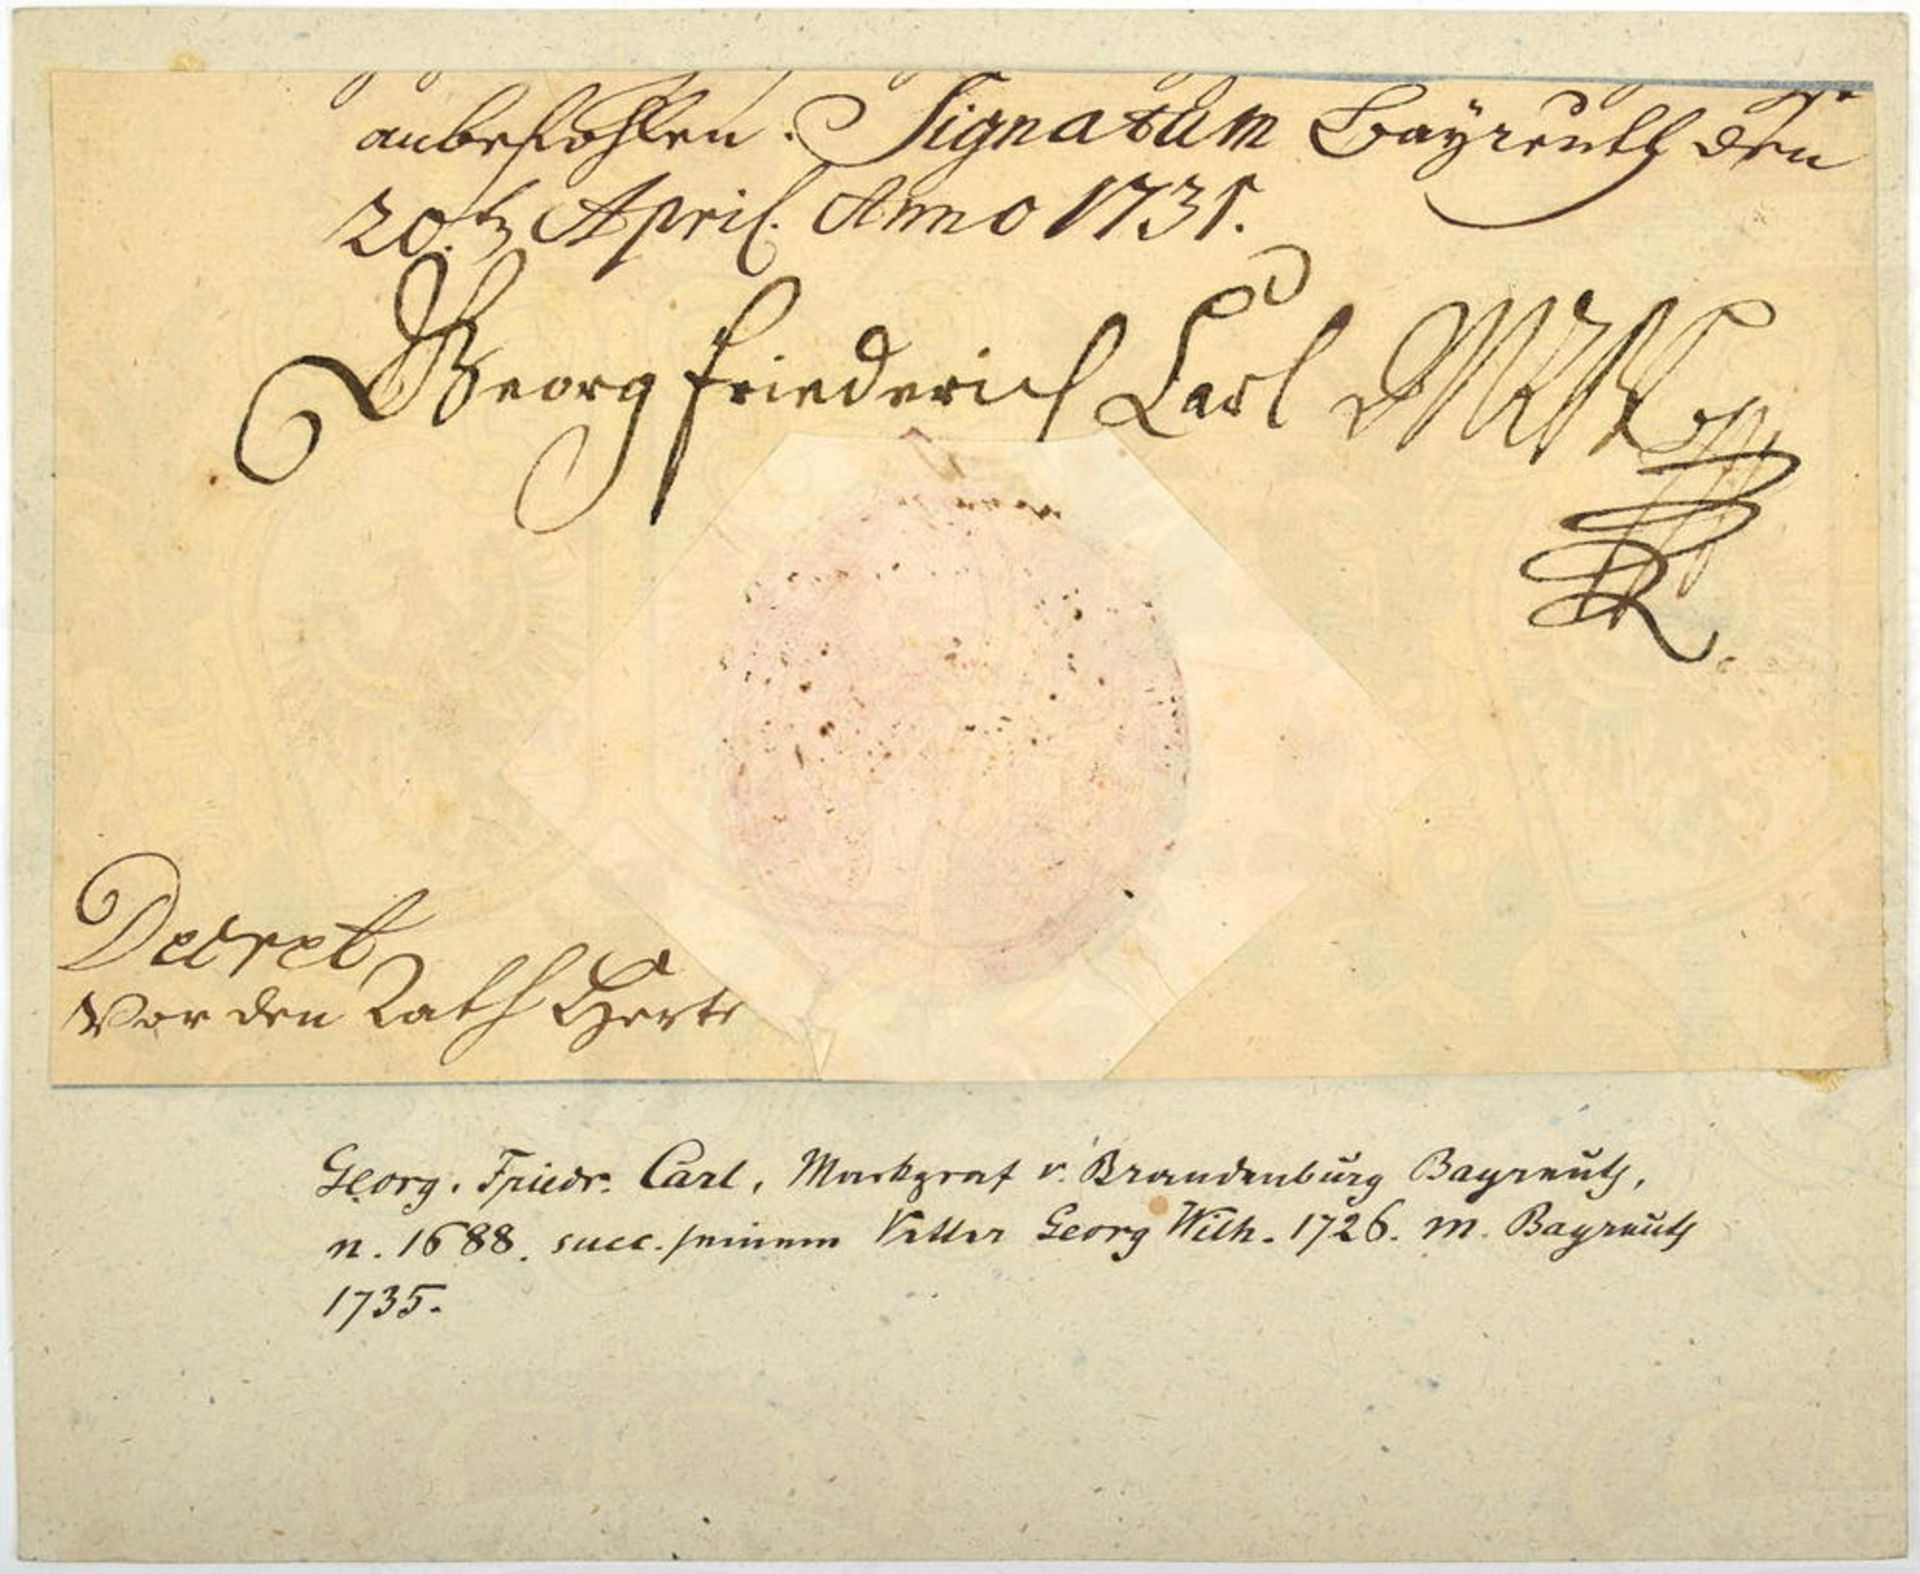 anbefohlen. Signatum Bayreuth den
20.ten April. Anno 1731.
Georg Friederich Carl MZB
Decret
Vor den Rath Herts
Georg. Friedr. Carl, Markgraf v. Brandenburg Bayreuth,
n. 1688. succ. seinem Vetter Georg Wilh. 1726. m. Bayreuth
1735.